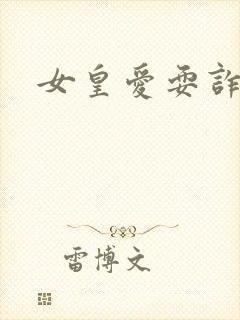 女皇愛耍詐
雷博文